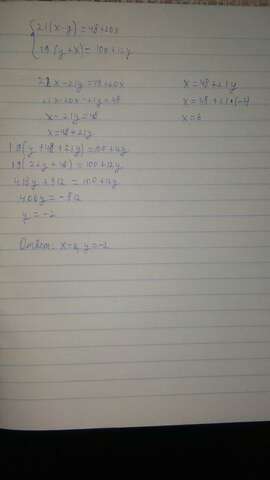 21(x-y)=48+20x
19(y+x)=100+12y
21x-21y=48+20x
21x-20x-21y=48
x-21y=48
x=48+21y
x=48+21y
x=48+21*(-2)
x=6
19(y+48+21y)=100+12y
19(22y+48)=100+12y
418y+912=100+12y
y=-2
Ответ: y=-2